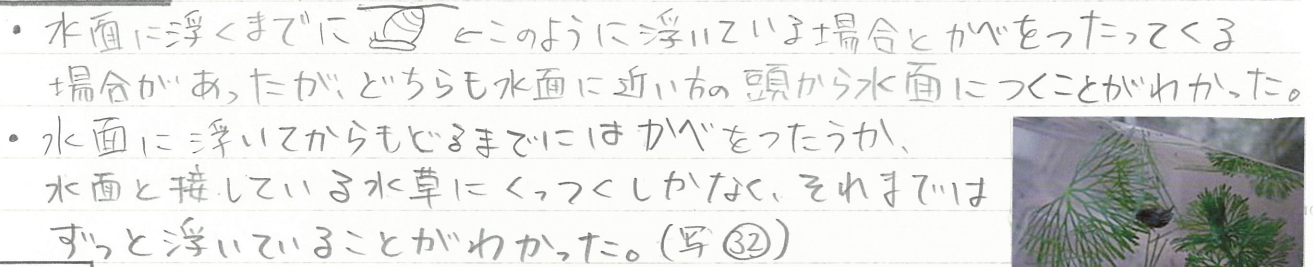 ・水面に浮くまでに ←このように浮いている場合とかべをつたってくる
場合があったが、どちらも水面に近い方の頭から水面につくことがわかった。
・水面に浮いてからもどるまでにはかべをつたうか、
水面と接している水草にくっつくしかなく、それまでは
ずっと浮いていることがわかった。(写㉜)